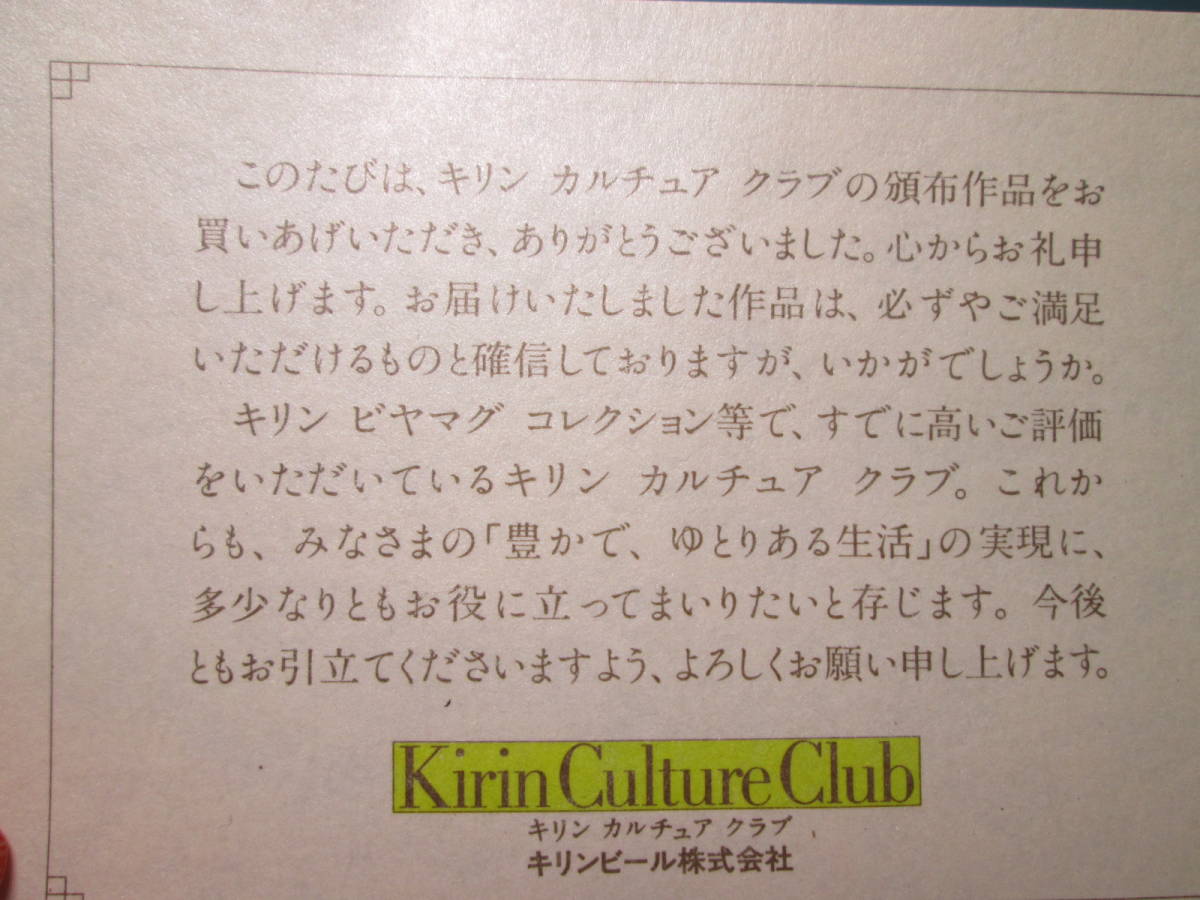 このたびは、キリン カルチュア クラブの頒布作品をお
買いあげいただき、ありがとうございました。心からお礼申
し上げます。お届けいたしました作品は、必ずやご満足
いただけるものと確信しておりますが、いかがでしょうか。
キリン ビヤマグ コレクション等で、すでに高いご評価
をいただいているキリン カルチュア クラブ。これか
らも、みなさまの「豊かで、ゆとりある生活」の実現に、
多少なりともお役に立ってまいりたいと存じます。今後
ともお引立てくださいますよう、よろしくお願い申し上げます。
Kirin Culture Club
キリン カルチュア クラブ
キリンビール株式会社